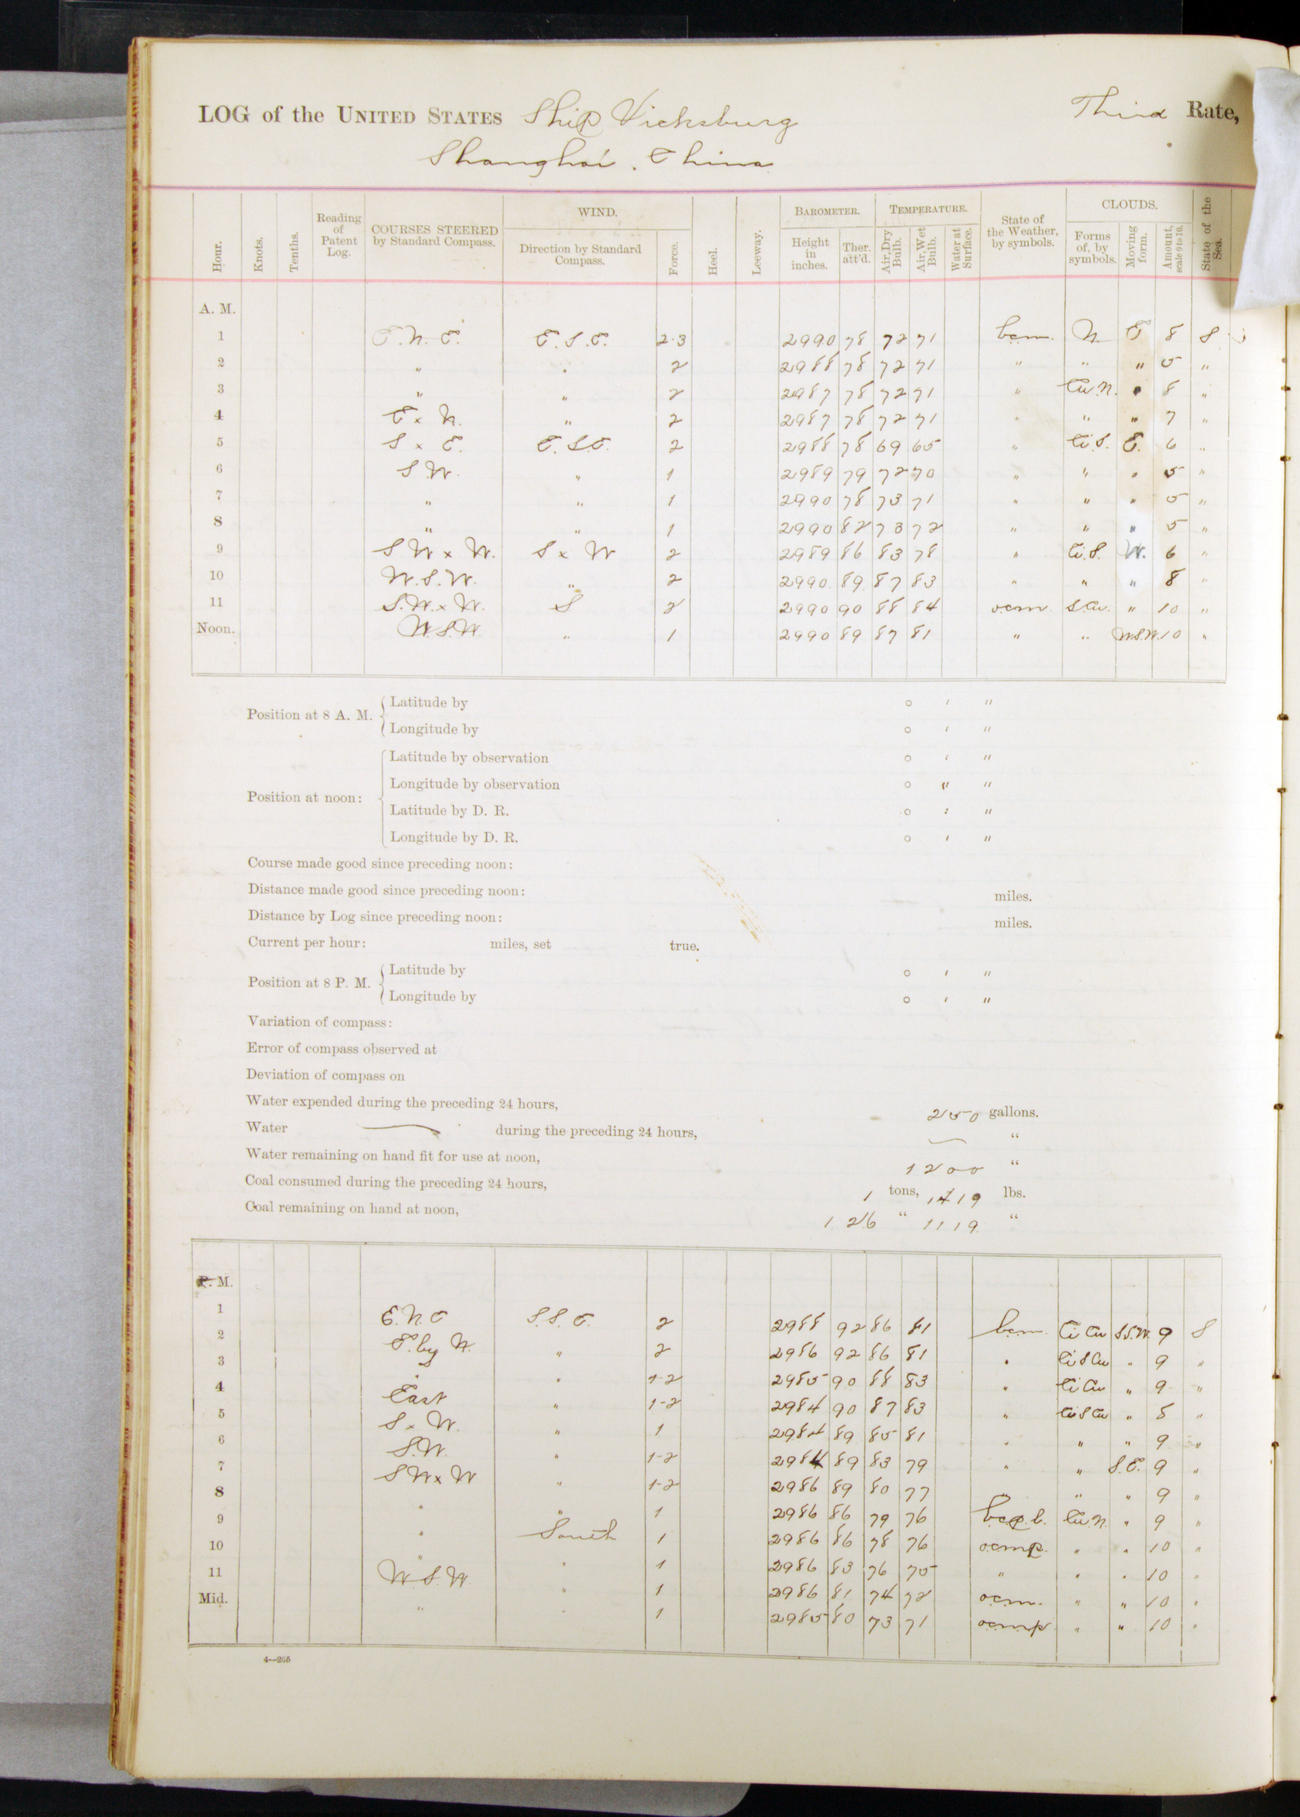 LOG of the UNITED STATES Ship Vicksburg Third Rate,
Shanghai. China
Hour. Knots. Tenths. Reading of Patent Log. COURSES STEERED by Standard Compass. WIND. Direction by Standard Compass. Force. Heel. Leeway. BAROMETER. Height in inches. Ther. att'd. TEMPERATURE. Air, Dry Bulb. Air, Wet Bulb. Water at Surface. State of the Weather, by symbols. CLOUDS. Forms of, by symbols. Moving form. Amount, scale 0 to 10. State of the Sea.
A. M.
1 E.N.E. E.S.E. 2-3 2990 78 72 71 bcm. N E 8 S
2 " " 2 2988 78 72 71 " " " 5 "
3 " " 2 2987 78 72 71 " Cu.N. " 8 "
4 E x N. " 2 2987 78 72 71 " " " 7 "
5 S x E. E.S.E. 2 2988 78 69 65 " Ci.S. E. 6 "
6 S.W. " 1 2989 79 72 70 " " " 5 "
7 " " 1 2990 78 73 71 " " " 5 "
8 " " 1 2990 82 73 72 " " " 5 "
9 S W x W. S x W 2 2989 86 83 78 " Ci.S. W. 6 "
10 W.S.W. " 2 2990 89 87 83 " " " 8 "
11 S.W. x W. S 2 2990 90 88 84 ocm S.Cu. " 10 "
Noon. W.S.W. " 1 2990 89 87 81 " " W.S.W. 10 "
Position at 8 A. M. Latitude by ° ' "
Longitude by ° ' "
Position at noon: Latitude by observation ° ' "
Longitude by observation ° ' "
Latitude by D. R. ° ' "
Longitude by D. R. ° ' "
Course made good since preceding noon:
Distance made good since preceding noon: miles.
Distance by Log since preceding noon: miles.
Current per hour: miles, set true.
Position at 8 P. M. Latitude by ° ' "
Longitude by ° ' "
Variation of compass:
Error of compass observed at
Deviation of compass on
Water expended during the preceding 24 hours, 250 gallons.
Water — during the preceding 24 hours, — "
Water remaining on hand fit for use at noon, 1200 "
Coal consumed during the preceding 24 hours, 1 tons, 1419 lbs.
Coal remaining on hand at noon, 126 " 1119 "
P. M.
1 E.N.E S.S.E. 2 2988 92 86 81 bcm. Ci Cu S.S.W. 9 S
2 E. by N. " 2 2986 92 86 81 " Ci S Cu " 9 "
3 " " 1-2 2985 90 88 83 " Ci Cu " 9 "
4 East " 1-2 2984 90 87 83 " Ci S Cu " 8 "
5 S x W. " 1 2984 89 85 81 " " " 9 "
6 S.W. " 1-2 2984 89 83 79 " " S.E. 9 "
7 S W x W " 1-2 2986 89 80 77 " " " 9 "
8 " " 1 2986 86 79 76 Cu N. " 9 "
9 " South 1 2986 86 78 76 ocmp. " " 10 "
10 " " 1 2986 83 76 75 " " " 10 "
11 W.S.W. " 1 2986 81 74 72 ocm. " " 10 "
Mid. " " 1 2985 80 73 71 ocmp " " 10 "
4—265